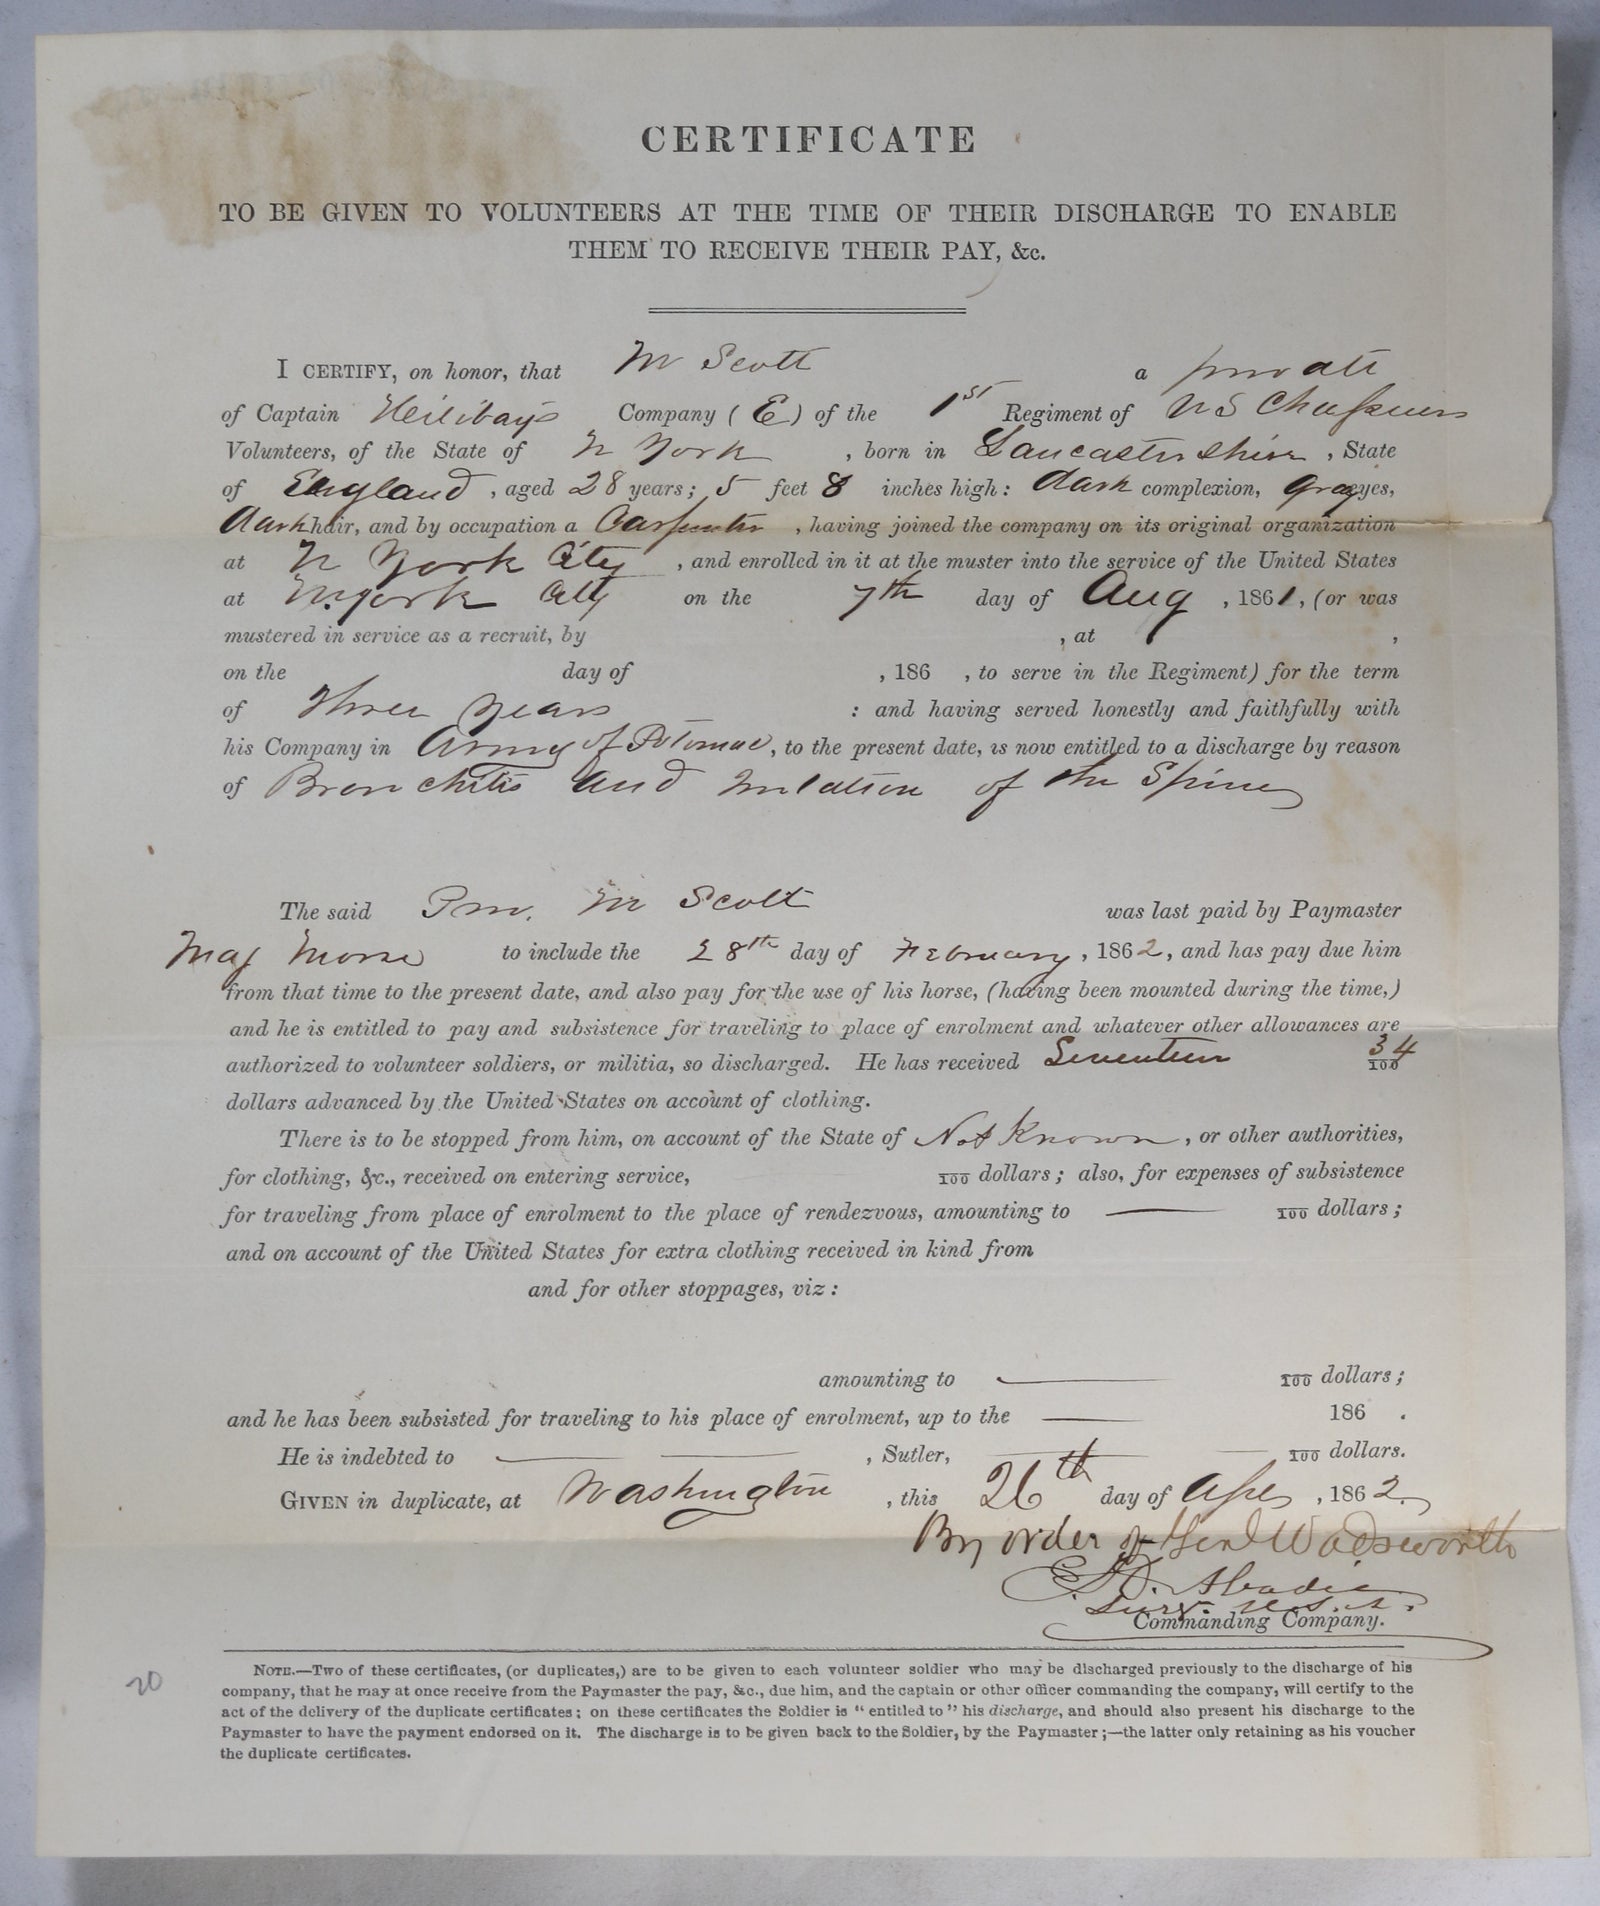 CERTIFICATE
TO BE GIVEN TO VOLUNTEERS AT THE TIME OF THEIR DISCHARGE TO ENABLE
THEM TO RECEIVE THEIR PAY, &c.
I CERTIFY, on honor, that M Scott a private
of Captain Company (E) of the 1st Regiment of U S Chasseurs
Volunteers, of the State of N York , born in Lancastershire , State
of England , aged 28 years; 5 feet 8 inches high: dark complexion, gray eyes,
dark hair, and by occupation a Carpenter , having joined the company on its original organization
at N York City , and enrolled in it at the muster into the service of the United States
at N. York City on the 7th day of Aug , 1861, (or was
mustered in service as a recruit, by , at ,
on the day of , 186 , to serve in the Regiment) for the term
of Three Years : and having served honestly and faithfully with
his Company in Army of Potomac, to the present date, is now entitled to a discharge by reason
of Bronchitis and of the Spine
The said M Scott was last paid by Paymaster
Maj Morse to include the 28th day of February, 1862, and has pay due him
from that time to the present date, and also pay for the use of his horse, (having been mounted during the time,)
and he is entitled to pay and subsistence for traveling to place of enrolment and whatever other allowances are
authorized to volunteer soldiers, or militia, so discharged. He has received Seventeen 34/100
dollars advanced by the United States on account of clothing.
There is to be stopped from him, on account of the State of Not Known, or other authorities,
for clothing, &c., received on entering service, /100 dollars; also, for expenses of subsistence
for traveling from place of enrolment to the place of rendezvous, amounting to —— /100 dollars;
and on account of the United States for extra clothing received in kind from
and for other stoppages, viz:
amounting to —— /100 dollars;
and he has been subsisted for traveling to his place of enrolment, up to the —— 186 .
He is indebted to —— —— , Sutler, —— —— /100 dollars.
GIVEN in duplicate, at Washington , this 26th day of Apl , 1862.
By order of Genl Wadsworth
Surg. U.S.A.
Commanding Company.
NOTE.—Two of these certificates, (or duplicates,) are to be given to each volunteer soldier who may be discharged previously to the discharge of his
company, that he may at once receive from the Paymaster the pay, &c., due him, and the captain or other officer commanding the company, will certify to the
act of the delivery of the duplicate certificates; on these certificates the Soldier is "entitled to" his discharge, and should also present his discharge to the
Paymaster to have the payment endorsed on it. The discharge is to be given back to the Soldier, by the Paymaster;—the latter only retaining as his voucher
the duplicate certificates.
20